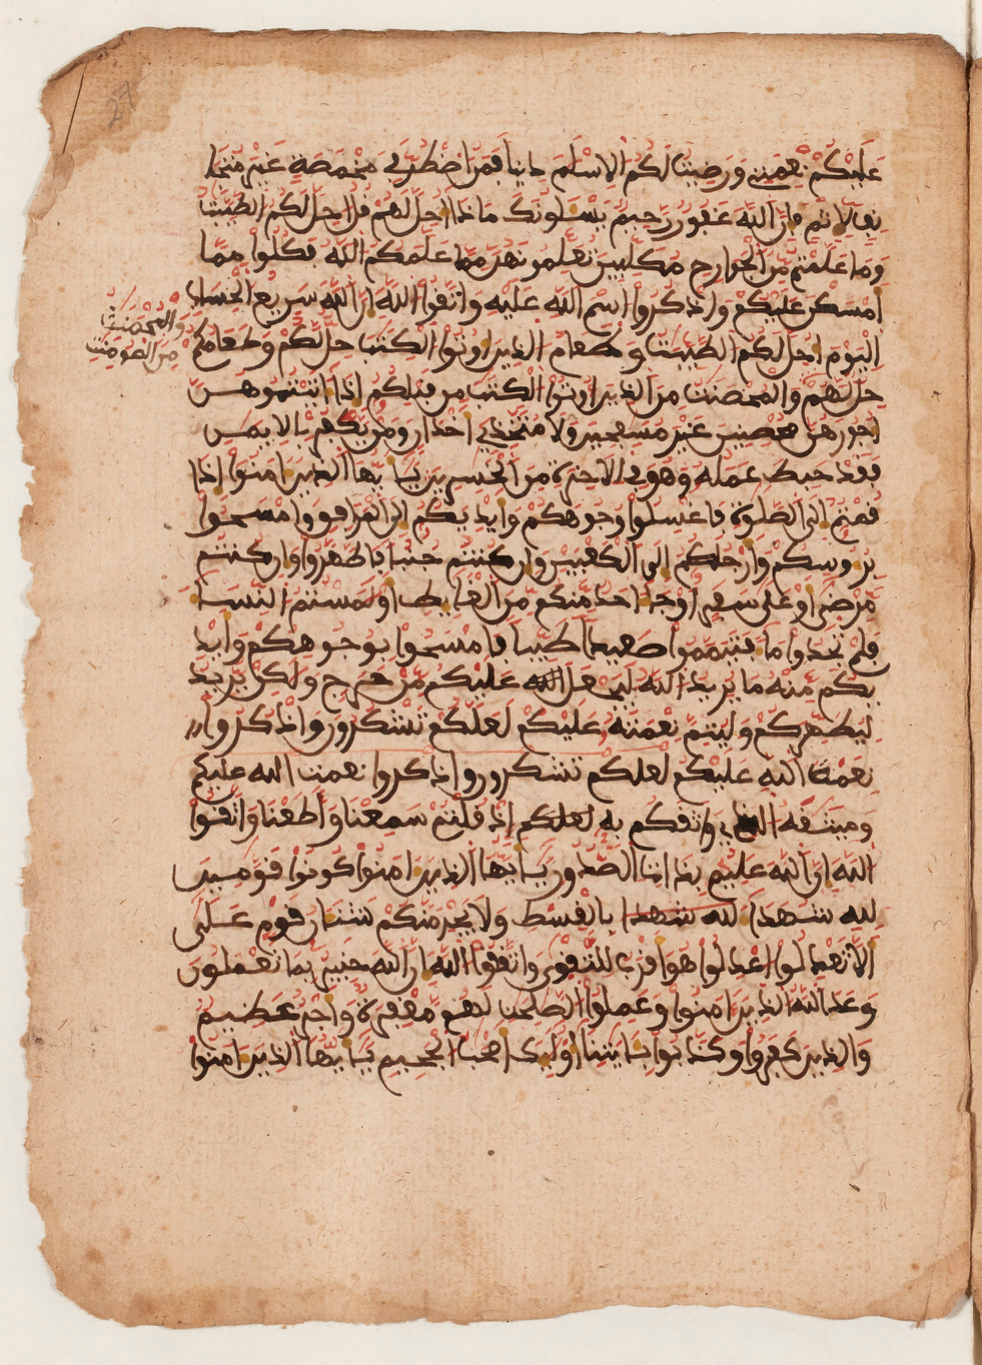 عَلَيْكُمْ نِعْمَتِي وَرَضِيتُ لَكُمُ الِاسْلَٰمَ دِيناً فَمَنُ اضْطُرَّ فِي مَخْمَصَةٍ غَيْرَ مُتَجَا
نِفٍ لِّإِثْمٍ فَإِنَّ اللَّهَ غَفُورٌ رَّحِيمٌ يَسْـَٔلُونَكَ مَاذَا أُحِلَّ لَهُمْ قُلُ احِلَّ لَكُمُ الطَّيِّبَٰتُ
وَمَا عَلَّمْتُم مِّنَ الْجَوَارِحِ مُكَلِّبِينَ تُعَلِّمُونَهُنَّ مِمَّا عَلَّمَكُمُ اللَّهُ فَكُلُوا مِمَّا
أَمْسَكْنَ عَلَيْكُمْ وَاذْكُرُوا اسْمَ اللَّهِ عَلَيْهِ وَاتَّقُوا اللَّهَ إِنَّ اللَّهَ سَرِيعُ الْحِسَابِ
الْيَوْمَ أُحِلَّ لَكُمُ الطَّيِّبَٰتُ وَطَعَامُ الذِينَ أُوتُوا الْكِتَٰبَ حِلٌّ لَّكُمْ وَطَعَامُكُمْ
وَالْمُحْصَنَٰتُ
مِنَ الْمُومِنَٰتِ
حِلٌّ لَّهُمْ وَالْمُحْصَنَٰتُ مِنَ الذِينَ أُوتُوا الْكِتَٰبَ مِن قَبْلِكُمْ إِذَا ءَاتَيْتُمُوهُنَّ
أُجُورَهُنَّ مُحْصِنِينَ غَيْرَ مُسَٰفِحِينَ وَلَا مُتَّخِذِي أَخْدَانٍ وَمَن يَّكْفُرْ بِالِايمَٰنِ
فَقَدْ حَبِطَ عَمَلُهُ وَهُوَ فِي الَاخِرَةِ مِنَ الْخَٰسِرِينَ يَٰأَيُّهَا الذِينَ ءَامَنُوا إِذَا
قُمْتُمُ إِلَى الصَّلَوٰةِ فَاغْسِلُوا وُجُوهَكُمْ وَأَيْدِيَكُمُ إِلَى الْمَرَافِقِ وَامْسَحُوا
بِرُءُوسِكُمْ وَأَرْجُلَكُمُ إِلَى الْكَعْبَيْنِ وَإِن كُنتُمْ جُنُباً فَاطَّهَّرُوا وَإِن كُنتُم
مَّرْضَىٰ أَوْ عَلَىٰ سَفَرٍ أَوْ جَاءَ احَدٌ مِّنكُم مِّنَ الْغَائِطِ أَوْ لَٰمَسْتُمُ النِّسَاءَ
فَلَمْ تَجِدُوا مَاءً فَتَيَمَّمُوا صَعِيداً طَيِّباً فَامْسَحُوا بِوُجُوهِكُمْ وَأَيْدِ
يكُم مِّنْهُ مَا يُرِيدُ اللَّهُ لِيَجْعَلَ عَلَيْكُم مِّنْ حَرَجٍ وَلَٰكِن يُّرِيدُ
لِيُطَهِّرَكُمْ وَلِيُتِمَّ نِعْمَتَهُ عَلَيْكُمْ لَعَلَّكُمْ تَشْكُرُونَ وَاذْكُرُوا
نِعْمَةَ اللَّهِ عَلَيْكُمْ لعلكم تشكرون واذكروا نعمت الله عليكم
وَمِيثَٰقَهُ الذِي وَاثَقَكُم بِهِ لعلكم إِذْ قُلْتُمْ سَمِعْنَا وَأَطَعْنَا وَاتَّقُوا
اللَّهَ إِنَّ اللَّهَ عَلِيمٌ بِذَاتِ الصُّدُورِ يَٰأَيُّهَا الذِينَ ءَامَنُوا كُونُوا قَوَّٰمِينَ
لِلهِ شُهَدَاءَ لله شهدا بِالْقِسْطِ وَلَا يَجْرِمَنَّكُمْ شَنَـَٔانُ قَوْمٍ عَلَىٰ
أَلَّا تَعْدِلُوا اعْدِلُوا هُوَ أَقْرَبُ لِلتَّقْوَىٰ وَاتَّقُوا اللَّهَ إِنَّ اللَّهَ خَبِيرٌ بِمَا تَعْمَلُونَ
وَعَدَ اللَّهُ الذِينَ ءَامَنُوا وَعَمِلُوا الصَّٰلِحَٰتِ لَهُم مَّغْفِرَةٌ وَأَجْرٌ عَظِيمٌ
وَالذِينَ كَفَرُوا وَكَذَّبُوا بِـَٔايَٰتِنَا أُوْلَٰئِكَ أَصْحَٰبُ الْجَحِيمِ يَٰأَيُّهَا الذِينَ ءَامَنُوا